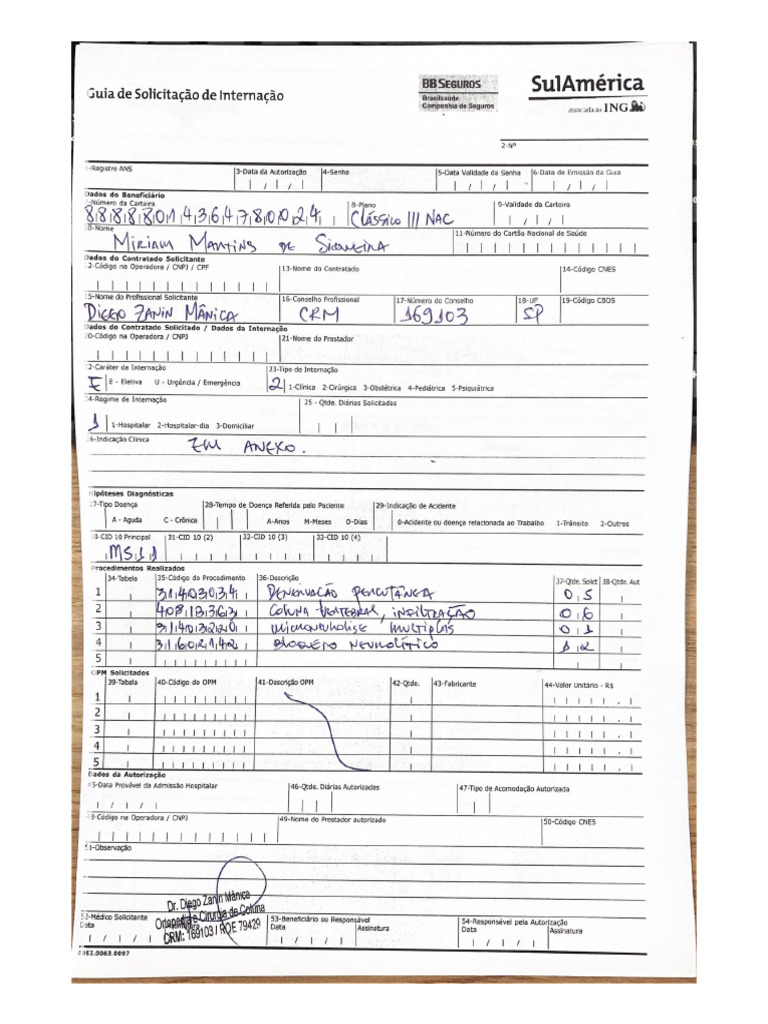 Guia de Solicitação de Internação
BB SEGUROS
Brasilsaúde
Companhia de Seguros
SulAmérica
associada ao ING
2-Nº
1-Registro ANS
3-Data da Autorização
4-Senha
5-Data Validade da Senha
6-Data de Emissão da Guia
Dados do Beneficiário
7-Número da Carteira
8-Plano
9-Validade da Carteira
88888014364780024
Clássico III NAC
10-Nome
11-Número do Cartão Nacional de Saúde
Miriam Martins de Siqueira
Dados do Contratado Solicitante
12-Código na Operadora / CNPJ / CPF
13-Nome do Contratado
14-Código CNES
15-Nome do Profissional Solicitante
16-Conselho Profissional
17-Número do Conselho
18-UF
19-Código CBOS
Diego Zanin Mânica
CRM
169103
SP
Dados do Contratado Solicitado / Dados da Internação
20-Código na Operadora / CNPJ
21-Nome do Prestador
22-Caráter de Internação
23-Tipo de Internação
E
E - Eletiva U - Urgência / Emergência
2
1-Clínica 2-Cirúrgica 3-Obstétrica 4-Pediátrica 5-Psiquiátrica
24-Regime de Internação
25 - Qtde. Diárias Solicitadas
1
1-Hospitalar 2-Hospitalar-dia 3-Domiciliar
26-Indicação Clínica
EM ANEXO.
Hipóteses Diagnósticas
27-Tipo Doença
28-Tempo de Doença Referida pelo Paciente
29-Indicação de Acidente
A - Aguda C - Crônica
A-Anos M-Meses D-Dias
0-Acidente ou doença relacionada ao Trabalho 1-Trânsito 2-Outros
30-CID 10 Principal
31-CID 10 (2)
32-CID 10 (3)
33-CID 10 (4)
M511
Procedimentos Realizados
34-Tabela
35-Código do Procedimento
36-Descrição
37-Qtde. Solict
38-Qtde. Aut
1 31403034 Denervação Percutânea 05
2 40813363 Coluna Vertebral, infiltração 06
3 31403220 Microneurólise Múltiplas 01
4 31602142 Bloqueio Neurolítico 12
5
OPM Solicitados
39-Tabela
40-Código do OPM
41-Descrição OPM
42-Qtde.
43-Fabricante
44-Valor Unitário - R$
1
2
3
4
5
Dados da Autorização
45-Data Provável da Admissão Hospitalar
46-Qtde. Diárias Autorizadas
47-Tipo de Acomodação Autorizada
48-Código na Operadora / CNPJ
49-Nome do Prestador autorizado
50-Código CNES
51-Observação
Dr. Diego Zanin Mânica
Ortopedia e Cirurgia de Coluna
CRM: 169103 / RQE 79429
52-Médico Solicitante
Data
53-Beneficiário ou Responsável
Data
Assinatura
54-Responsável pela Autorização
Data
Assinatura
0053.0063.0097